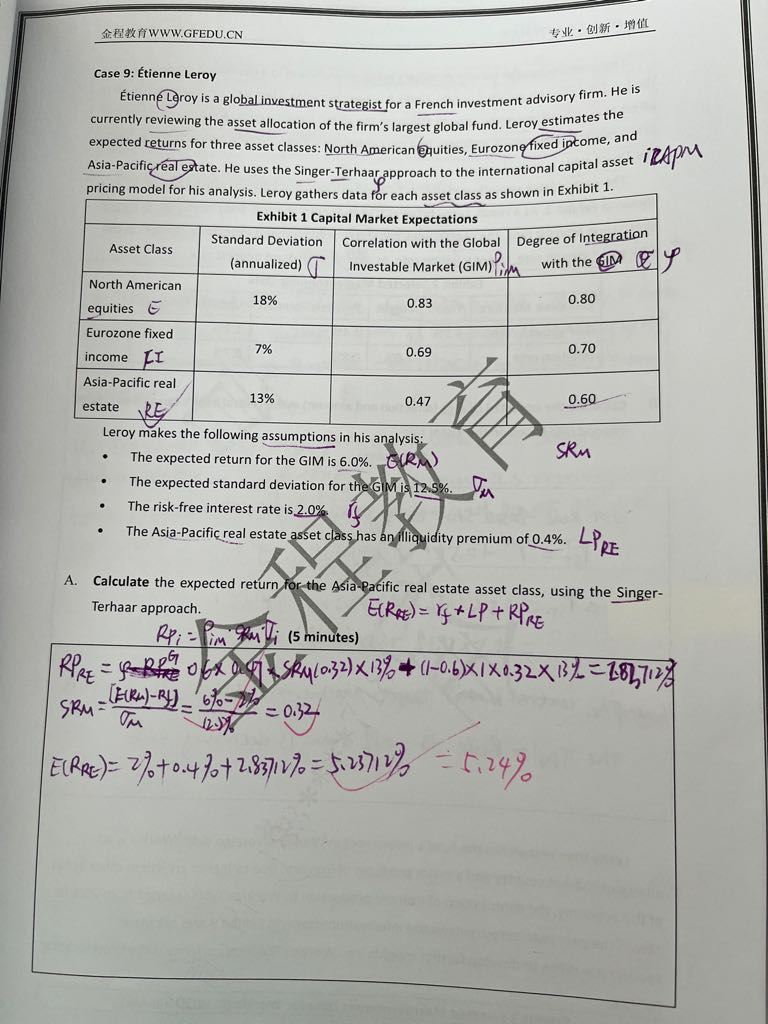 金程教育WWW.GFEDU.CN
专业·创新·增值
Case 9: Étienne Leroy
Étienne Leroy is a global investment strategist for a French investment advisory firm. He is
currently reviewing the asset allocation of the firm's largest global fund. Leroy estimates the
expected returns for three asset classes: North American equities, Eurozone fixed income, and
Asia-Pacific real estate. He uses the Singer-Terhaar approach to the international capital asset
ICAPM
pricing model for his analysis. Leroy gathers data for each asset class as shown in Exhibit 1.
φ
Exhibit 1 Capital Market Expectations
Asset Class
Standard Deviation
(annualized) σ
Correlation with the Global
Investable Market (GIM) ρim
Degree of Integration
with the GIM φ
North American
equities E
18%
0.83
0.80
Eurozone fixed
income FI
7%
0.69
0.70
Asia-Pacific real
estate RE
13%
0.47
0.60
Leroy makes the following assumptions in his analysis:
SRM
• The expected return for the GIM is 6.0%. E(RM)
• The expected standard deviation for the GIM is 12.5%. σM
• The risk-free interest rate is 2.0%. rf
• The Asia-Pacific real estate asset class has an illiquidity premium of 0.4%. LPRE
A. Calculate the expected return for the Asia-Pacific real estate asset class, using the Singer-
Terhaar approach.
E(RRE) = rf + LP + RPRE
RPi = ρim SRM σi (5 minutes)
RPRE = 0.6 × 0.47 × SRM(0.32) × 13% + (1-0.6) × 1 × 0.32 × 13% = 2.83712%
SRM = [E(RM)-Rf] / σM = 6%-2% / 12.5% = 0.32
E(RRE) = 2% + 0.4% + 2.83712% = 5.23712% = 5.24%
金程教育